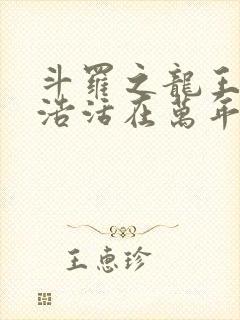 斗羅之龍王
浩活在萬年
王惠珍